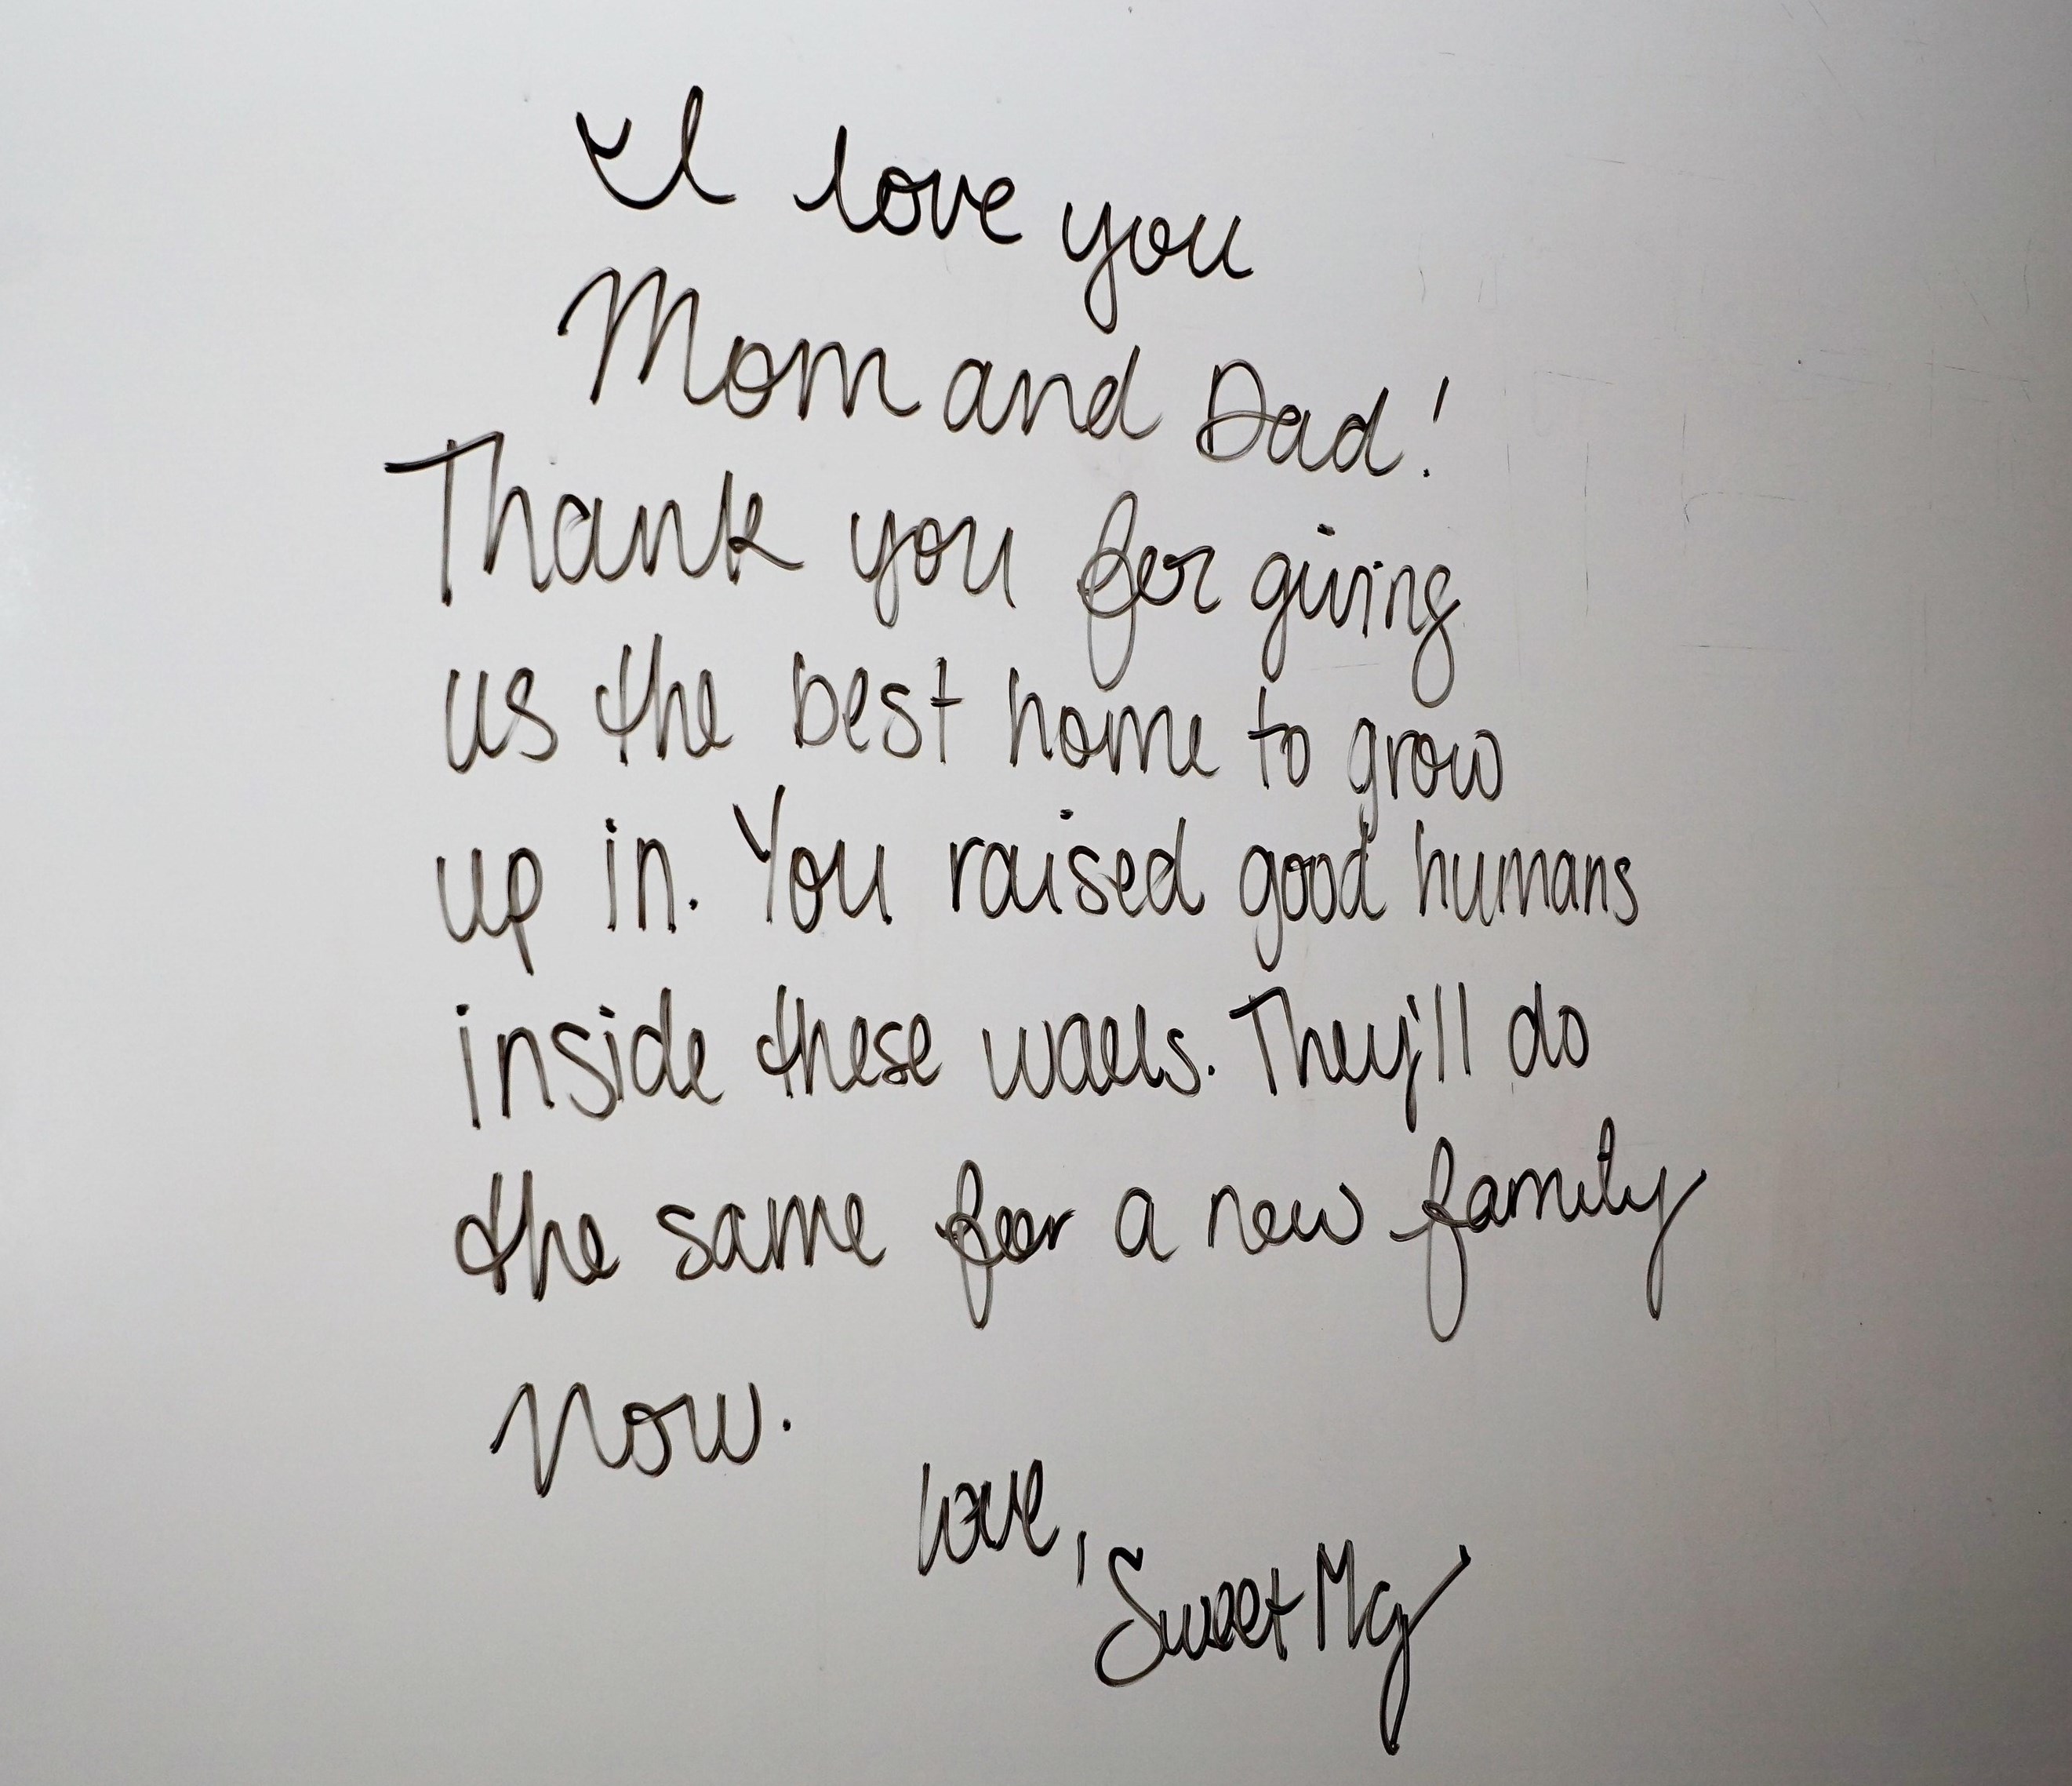 I love you
Mom and Dad!
Thank you for giving
us the best home to grow
up in. You raised good humans
inside these walls. They'll do
the same for a new family
now.
Love,
Sweet